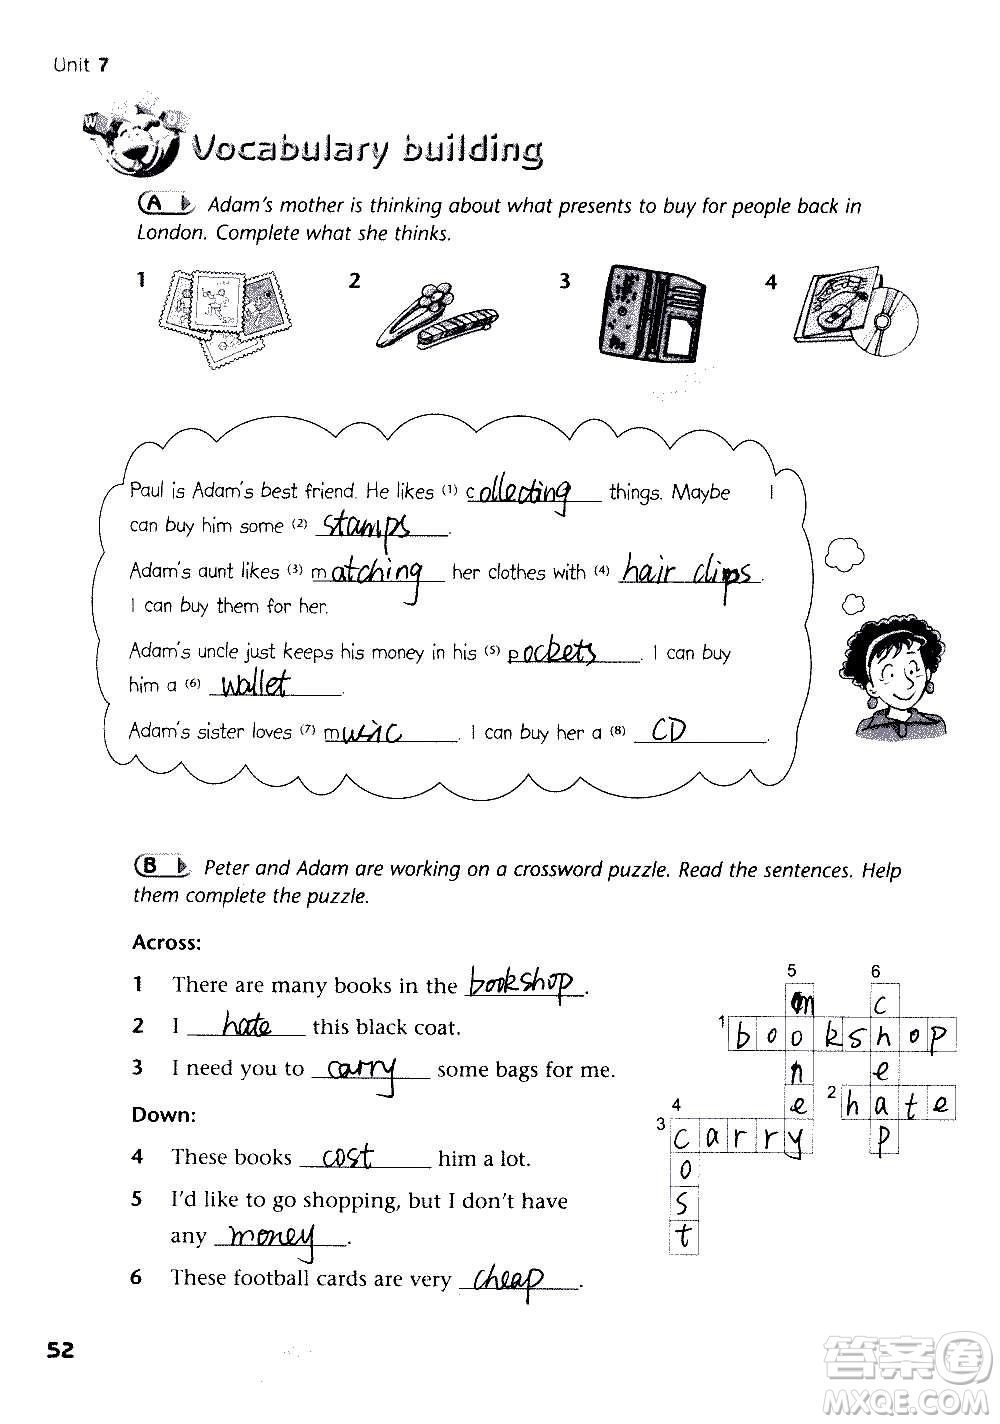 Unit 7
Vocabulary building
A Adam's mother is thinking about what presents to buy for people back in
London. Complete what she thinks.
1 2 3 4
Paul is Adam's best friend. He likes (1) collecting things. Maybe I
can buy him some (2) stamps.
Adam's aunt likes (3) matching her clothes with (4) hair clips.
I can buy them for her.
Adam's uncle just keeps his money in his (5) pockets. I can buy
him a (6) wallet.
Adam's sister loves (7) music. I can buy her a (8) CD.
B Peter and Adam are working on a crossword puzzle. Read the sentences. Help
them complete the puzzle.
Across:
1 There are many books in the bookshop.
2 I hate this black coat.
3 I need you to carry some bags for me.
Down:
4 These books cost him a lot.
5 I'd like to go shopping, but I don't have
any money.
6 These football cards are very cheap.
5 6
m c
1 bookshop
n e
e 2 hate
4
3 carry p
o
s
t
52
答案圈
MXQE.COM